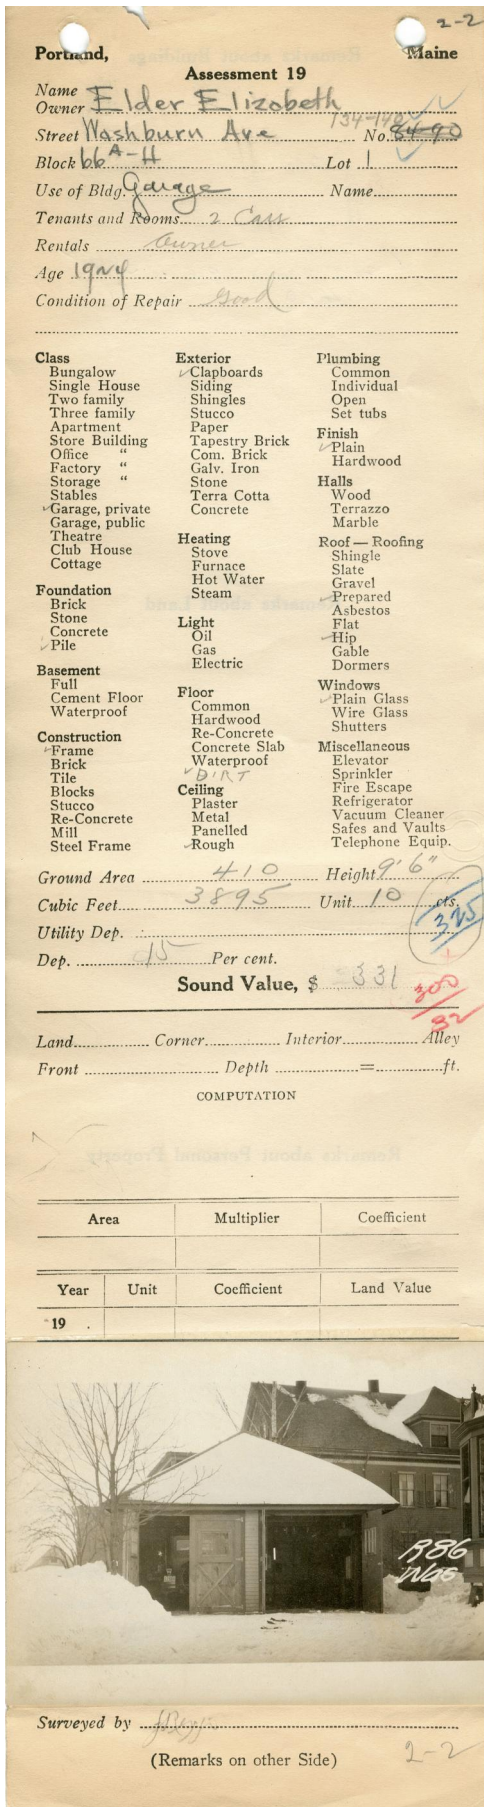 2-2
Portland, Maine
Assessment 19
Name
Owner Elder Elizabeth
134-140
Street Washburn Ave No. 84-90
Block 66A-H Lot 1
Use of Bldg. Garage Name
Tenants and Rooms 2 Cars
Rentals Owner
Age 1924
Condition of Repair Good
Class
Bungalow
Single House
Two family
Three family
Apartment
Store Building
Office "
Factory "
Storage "
Stables
✓Garage, private
Garage, public
Theatre
Club House
Cottage
Foundation
Brick
Stone
Concrete
✓Pile
Basement
Full
Cement Floor
Waterproof
Construction
✓Frame
Brick
Tile
Blocks
Stucco
Re-Concrete
Mill
Steel Frame
Exterior
✓Clapboards
Siding
Shingles
Stucco
Paper
Tapestry Brick
Com. Brick
Galv. Iron
Stone
Terra Cotta
Concrete
Heating
Stove
Furnace
Hot Water
Steam
Light
Oil
Gas
Electric
Floor
Common
Hardwood
Re-Concrete
Concrete Slab
Waterproof
✓DIRT
Ceiling
Plaster
Metal
Panelled
✓Rough
Plumbing
Common
Individual
Open
Set tubs
Finish
✓Plain
Hardwood
Halls
Wood
Terrazzo
Marble
Roof — Roofing
Shingle
Slate
Gravel
✓Prepared
Asbestos
Flat
✓Hip
Gable
Dormers
Windows
✓Plain Glass
Wire Glass
Shutters
Miscellaneous
Elevator
Sprinkler
Fire Escape
Refrigerator
Vacuum Cleaner
Safes and Vaults
Telephone Equip.
Ground Area 410 Height 9' 6"
Cubic Feet 3895 Unit 10 cts.
325
Utility Dep.
Dep. 15 Per cent.
Sound Value, $ 331
300
32
Land Corner Interior Alley
Front Depth = ft.
COMPUTATION
Area Multiplier Coefficient
Year Unit Coefficient Land Value
19 .
R86
Was
Surveyed by
(Remarks on other Side)
2-2